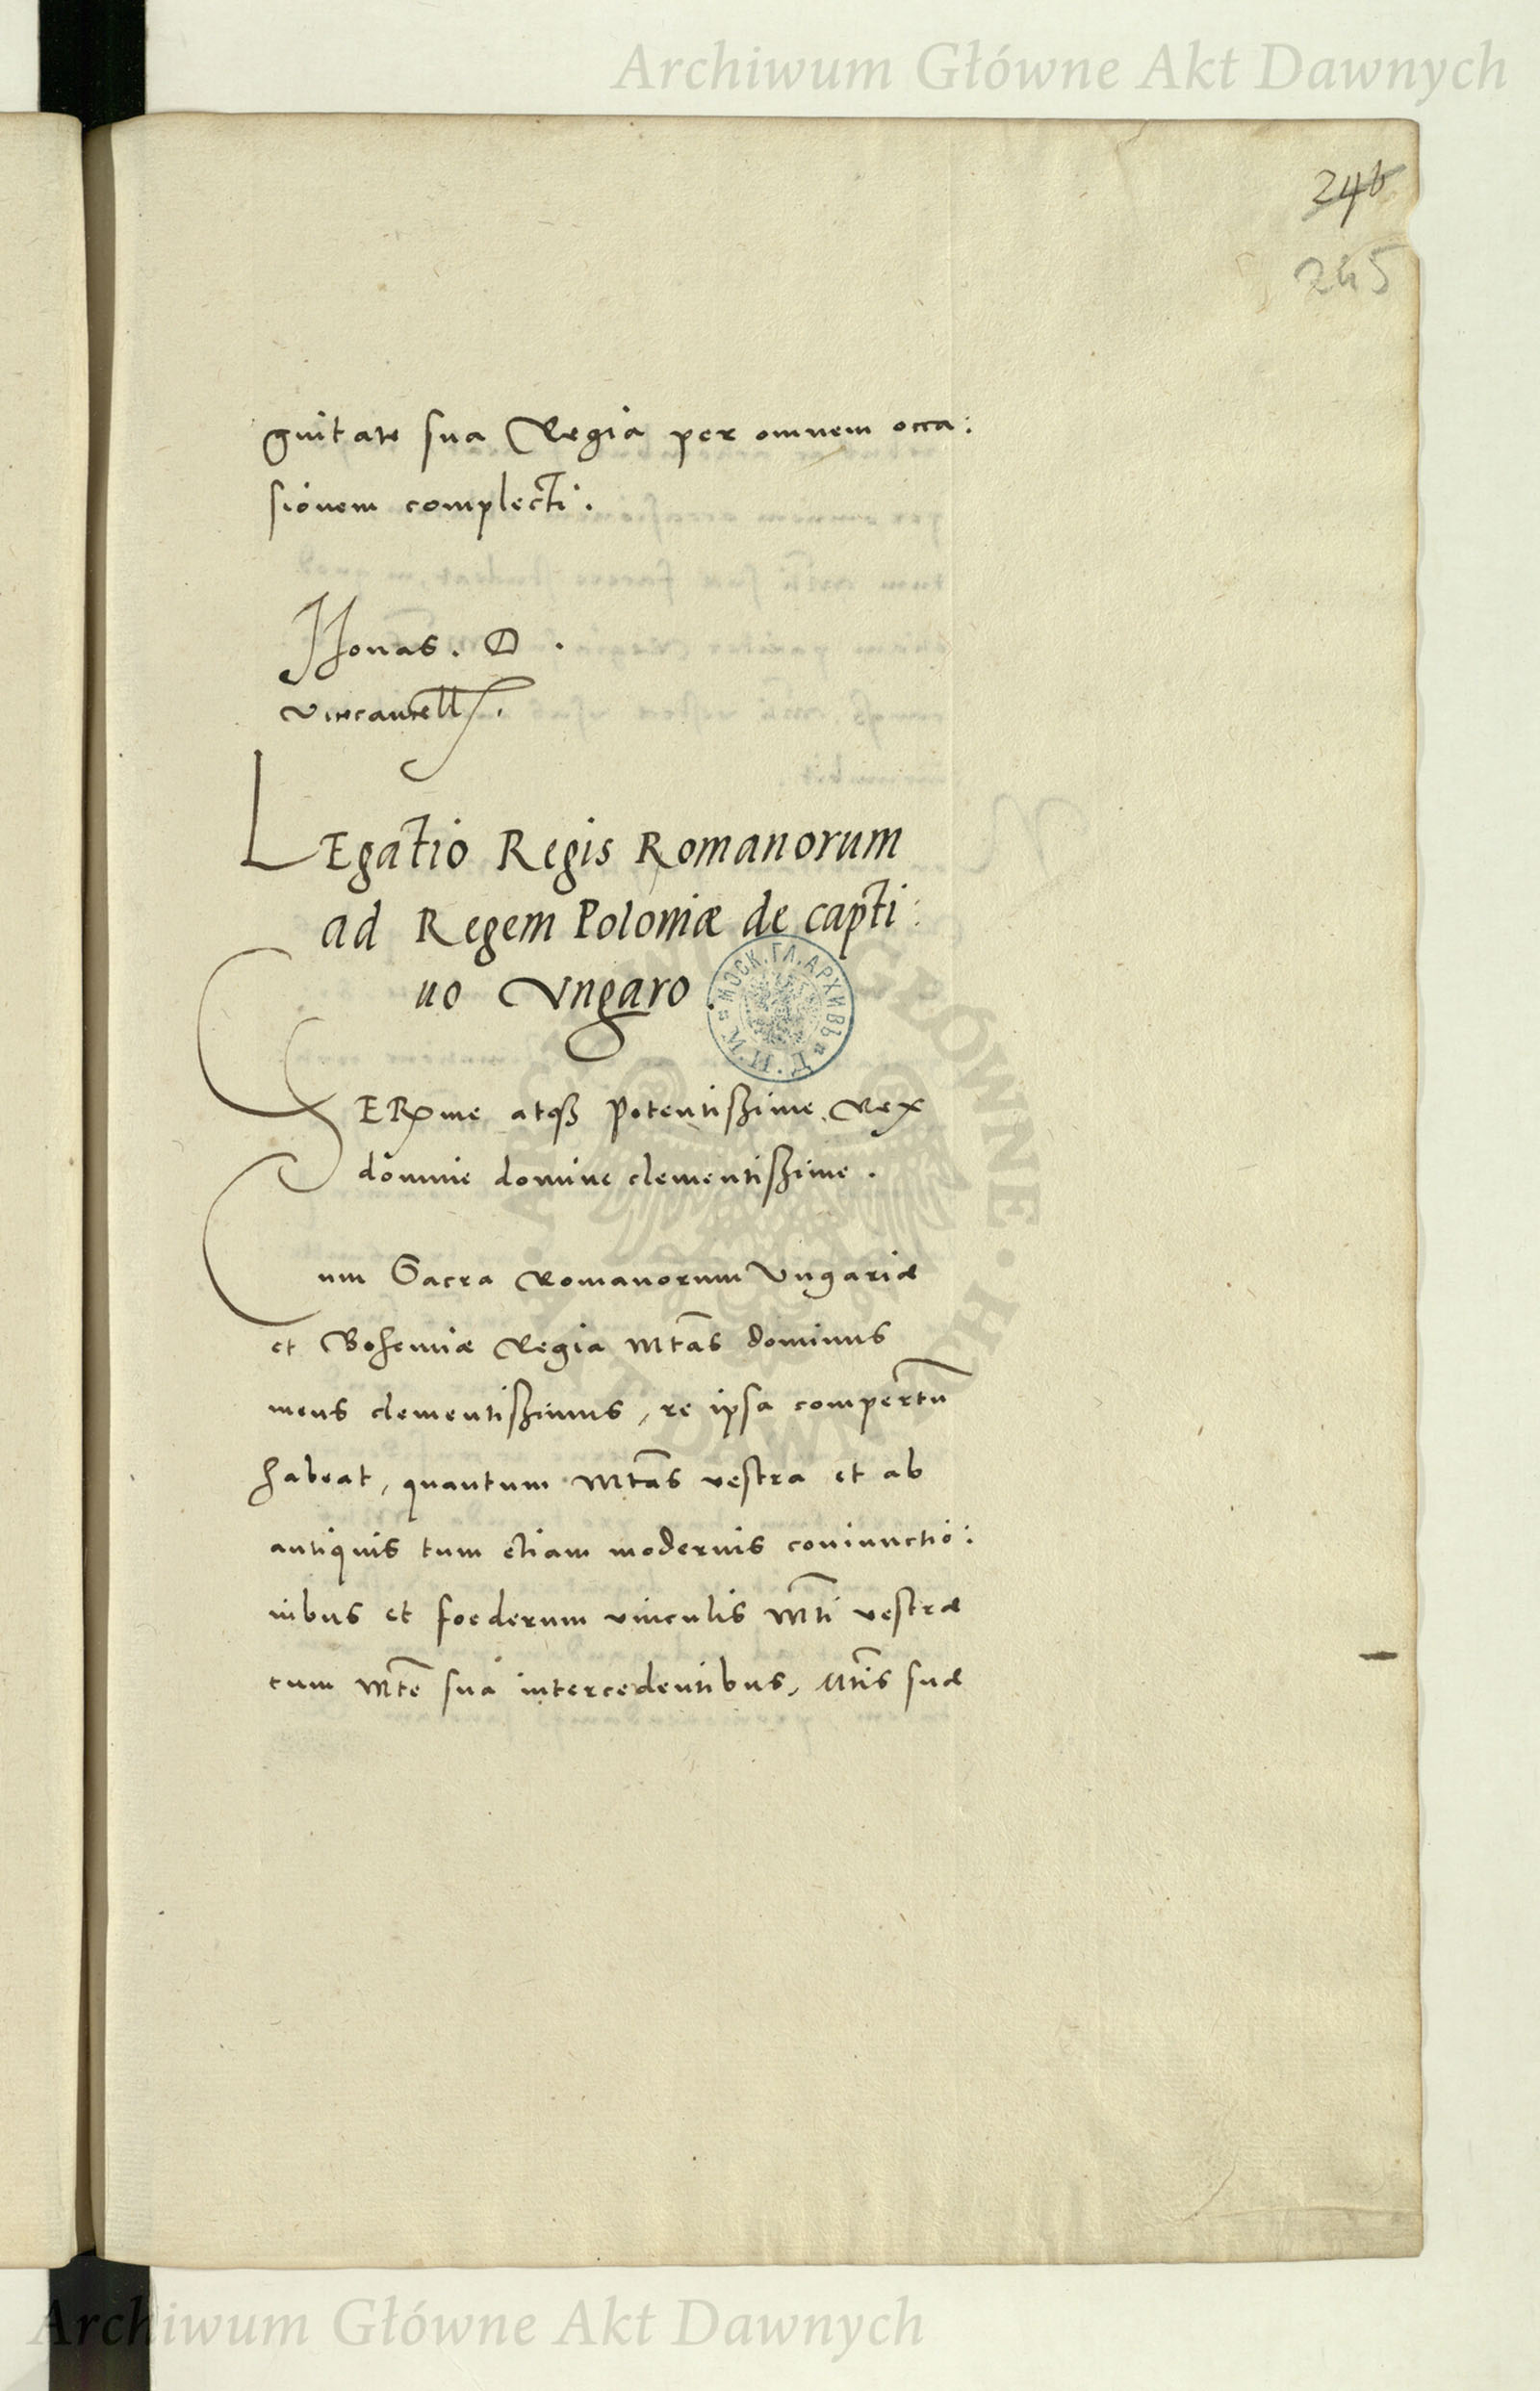 Archiwum Główne Akt Dawnych
246
245
gnitate sua Regia per omnem occa:
sionem complecti.
Jonas. D.
vicecancell.
LEgatio Regis Romanorum
ad Regem Poloniæ de capti:
uo Vngaro.
МОСК. ГЛ. АРХИВЪ
SERme atqʒ Potentissime Rex
domine domine clementissime.
Cum Sacra Romanorum Vngariæ
et Bohemiæ Regia Mtas dominus
meus clementissimus, re ipsa compertū
habeat, quantum Mtas vestra et ab
antiquis tum etiam modernis coniunctio:
nibus et foederum vinculis Mti vestræ
cum Mte sua intercedentibus, Mtis suæ
ARCHIWUM GŁÓWNE AKT DAWNYCH
Archiwum Główne Akt Dawnych